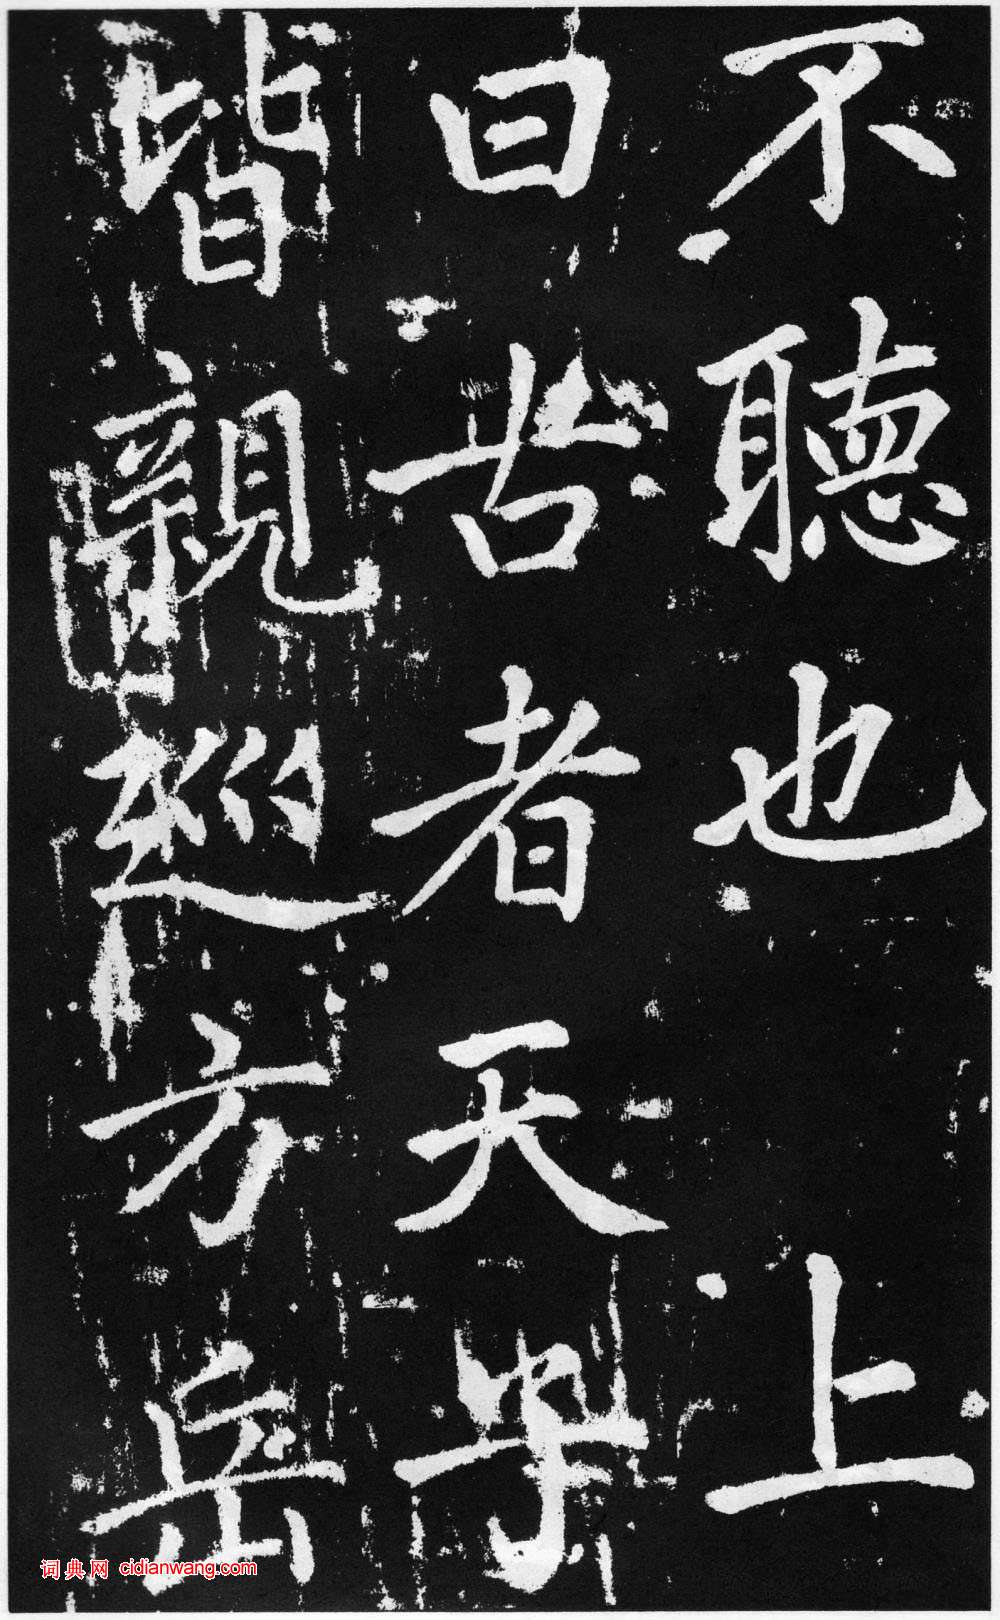 不聽也上
曰古者天子
皆親巡方岳
词典网 cidianwang.com